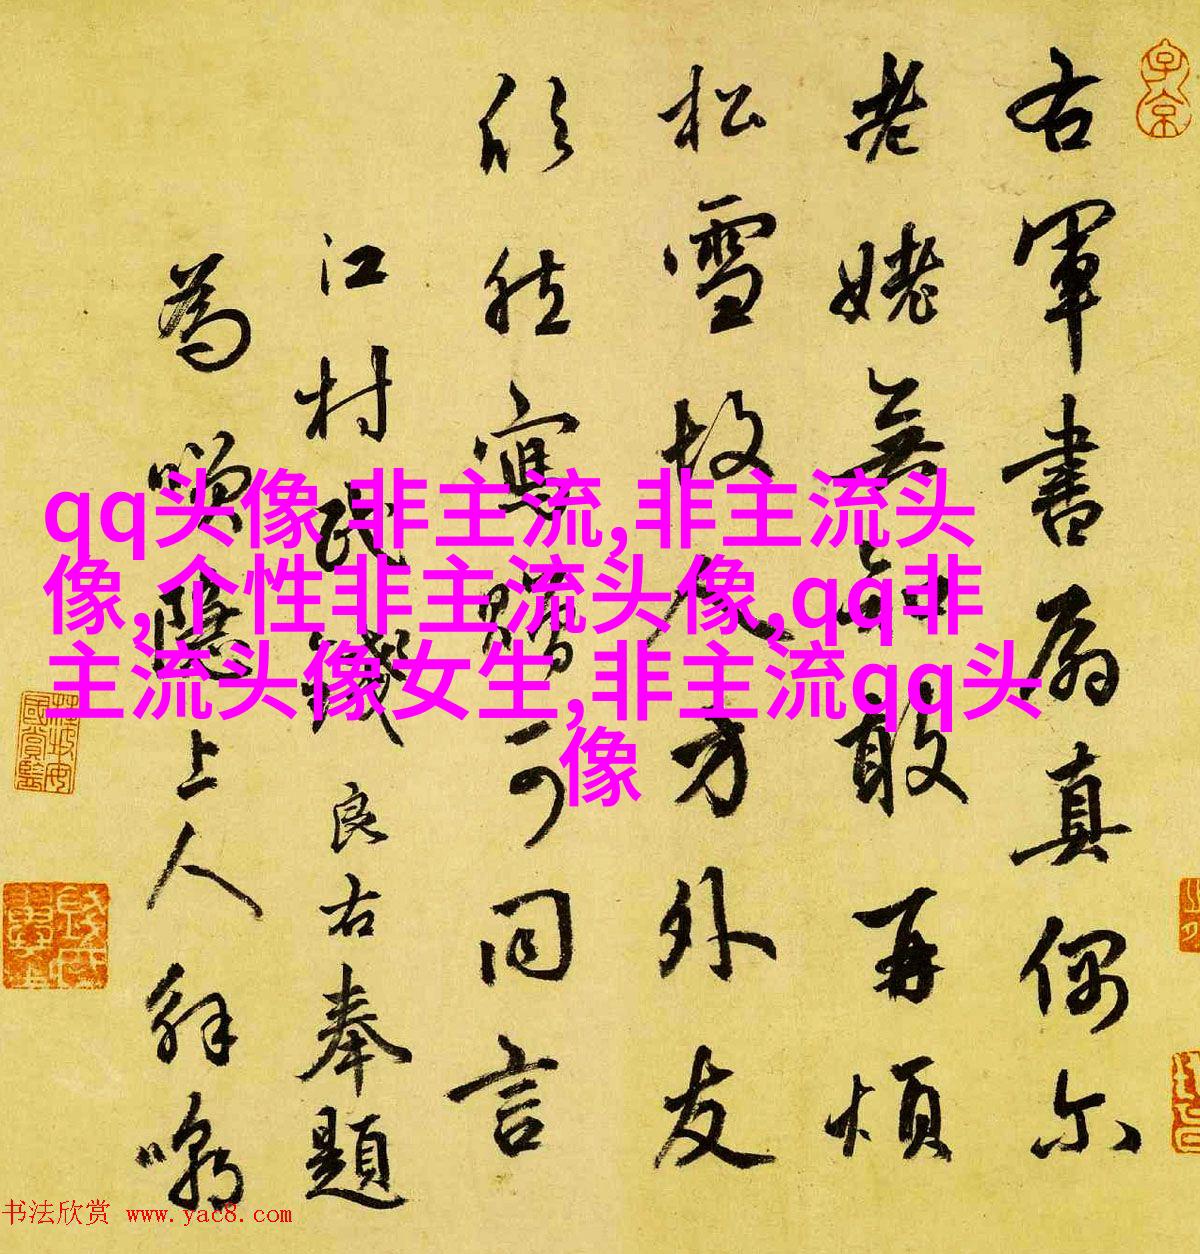 右軍書扇真偶尔
老姥無知敢再煩
松雪故人方外友
欣然寫贈可同言
江村民鐩良右奉題
為噗隱上人解嘲
qq头像 非主流,非主流头
像,个性非主流头像,qq非
主流头像女生,非主流qq头
像
书法欣赏 www.yac8.com